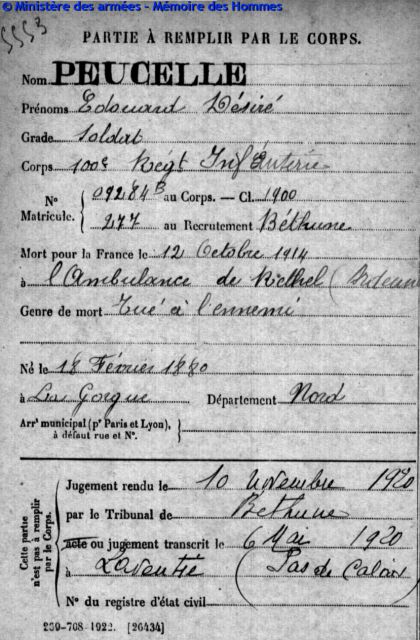 © Ministère des armées - Mémoire des Hommes
5553
PARTIE À REMPLIR PAR LE CORPS.
Nom PEUCELLE
Prénoms Edouard Désiré
Grade Soldat
Corps 100e Régt Inf
N° Matricule. { 09284B au Corps. — Cl. 1900
277 au Recrutement Béthune
Mort pour la France le 12 Octobre 1914
à l'Ambulance de Rethel (
Genre de mort Tué à l'ennemi
Né le 18 Février 1880
à La Gorgue Département Nord
Arrt municipal (pr Paris et Lyon), à défaut rue et N°. {
Cette partie n'est pas à remplir par le Corps.
Jugement rendu le 10 novembre 1920
par le Tribunal de Béthune
acte ou jugement transcrit le 6 Mai 1920
à Laventie (Pas de Calais)
N° du registre d'état civil
230-708-1922. [26434]